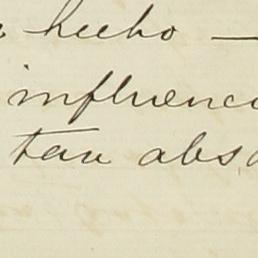 hecho —
influenci
tan abs